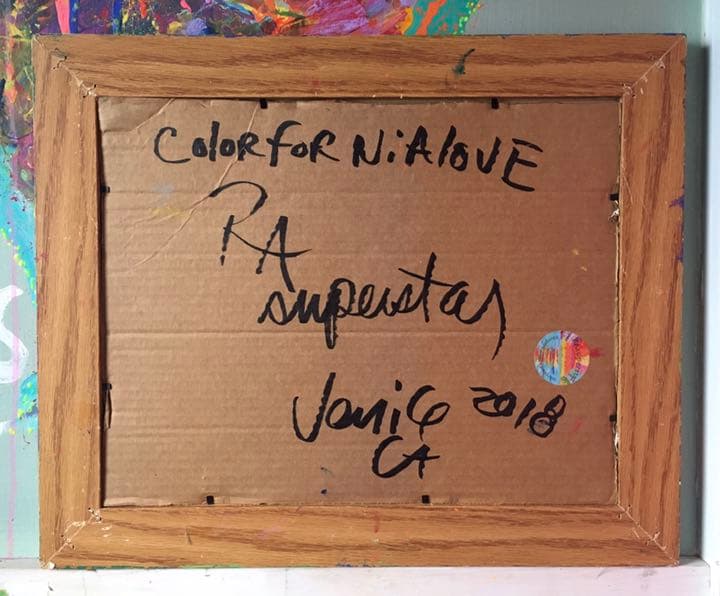 COLOR FOR NiA lOVE
RA
superstar
Venice 2018
CA